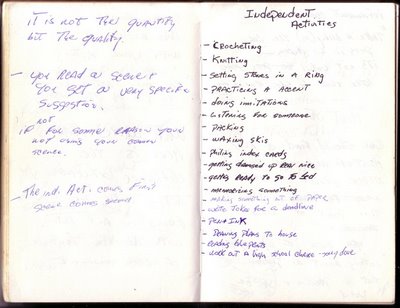 it is not the quantity
but the quality.
- you read a scene &
you get a very specific
suggestion.
not
if for some reason your
not using your
scene.
- The ind. Act. comes first
scene comes second
Independent
Activities
- Crocheting
- Knitting
- setting stones in a ring
- practicing a accent
- doing imitations
- listening for someone
- packing
- waxing skis
- filing index cards
- getting dressed up real nice
- getting ready to go to bed
- memorizing something
- making something out of paper
- write jokes for a deadline
- pen & ink
- Drawing plans to house
- loading
- work out a high school cheer